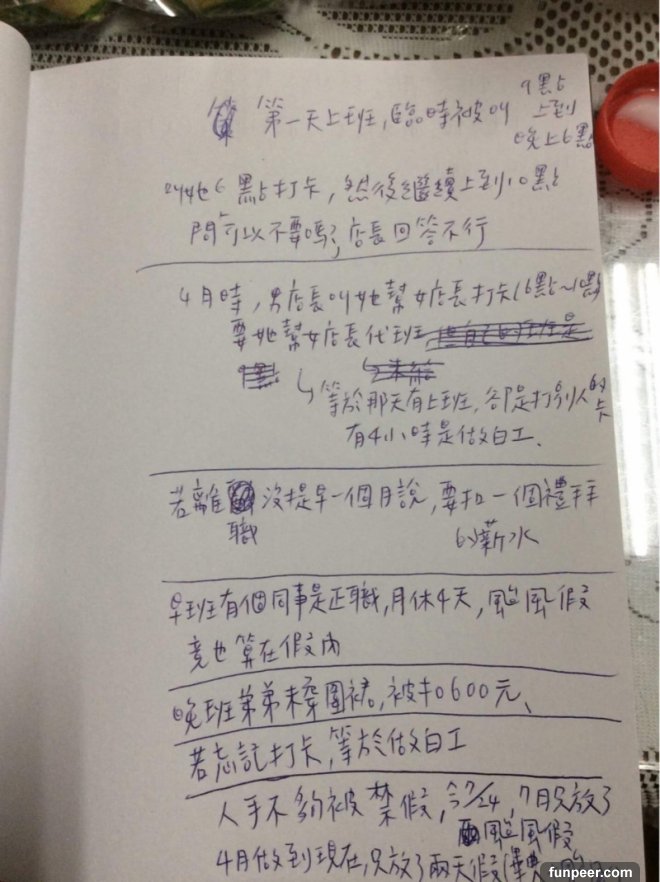 第一天上班，臨時被叫
9點
上到
晚上6點
叫她6點打卡，然後繼續上到10點
問可以不要嗎?，店長回答不行
4月時，男店長叫她幫女店長打卡(6點~10點
要她幫女店長代班
等於那天有上班，卻是打別人的卡
有4小時是做白工、
若離職沒提早一個月說，要扣一個禮拜
的薪水
早班有個同事是正職，月休4天，颱風假
竟也算在假內
晚班弟弟未穿圍裙，被扣600元、
若忘記打卡，等於做白工
人手不夠被禁假，今7/24，7月只放了
颱風假
4月做到現在，只放了兩天假
funpeer.com